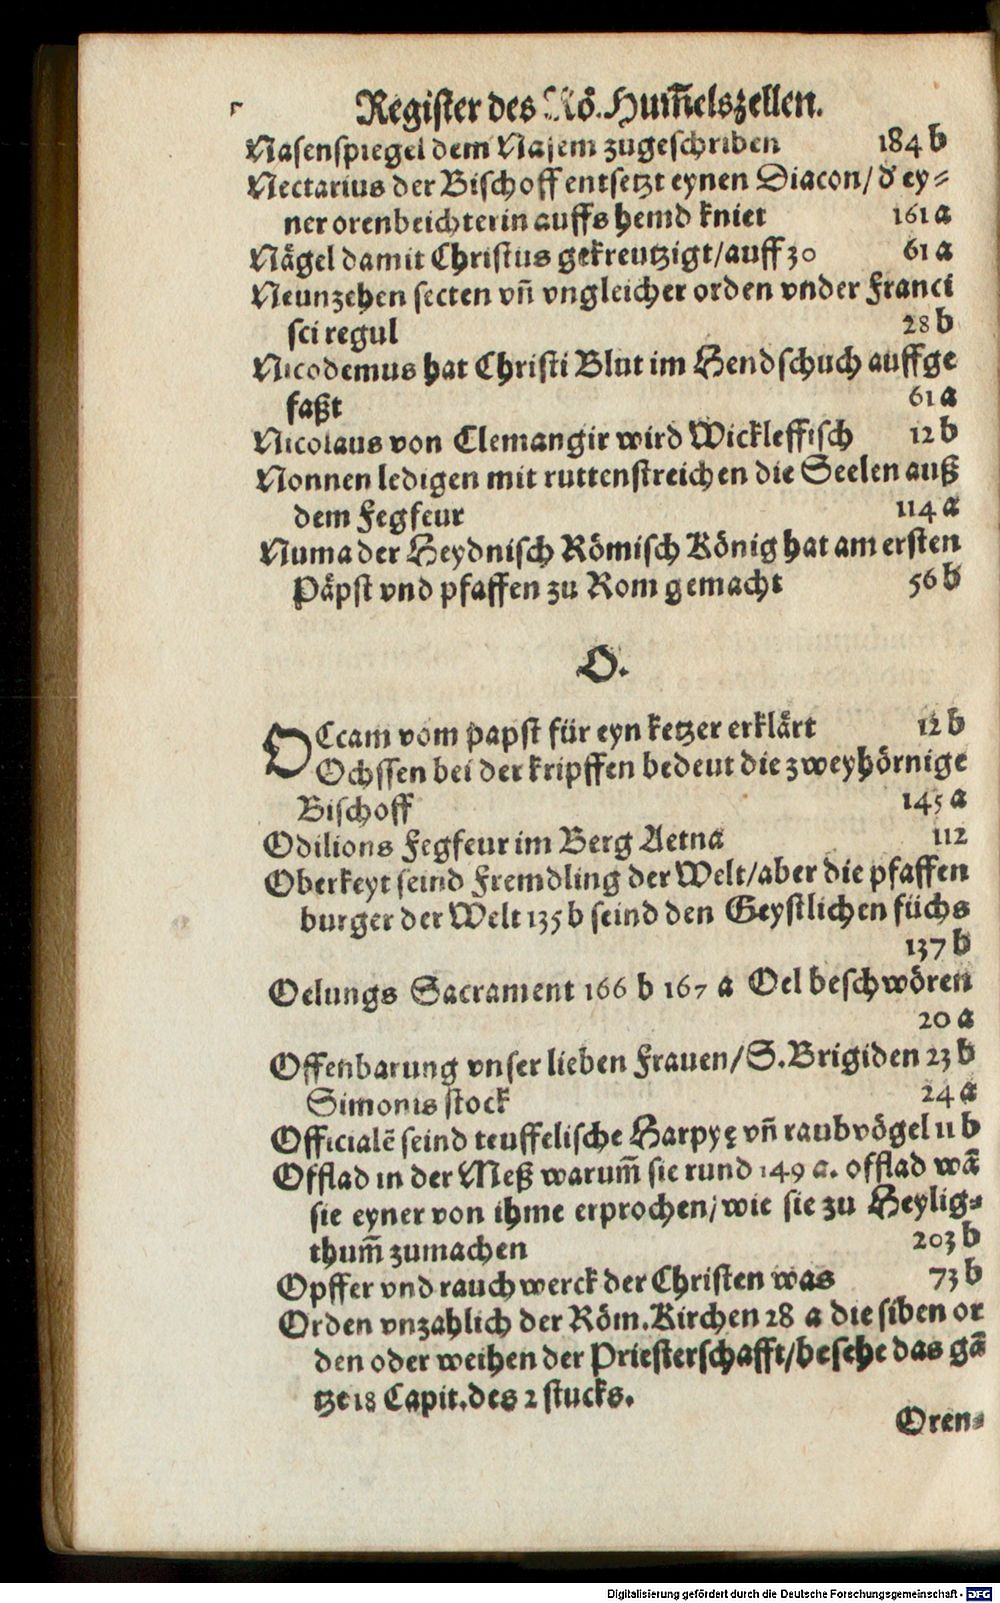 Register des Rö. Hum̃elszellen.
Nasenspiegel dem Nasem zugeschriben 184 b
Nectarius der Bischoff entsetzt eynen Diacon/ d' ey⸗
ner orenbeichterin auffs hemd kniet 161 a
Nägel damit Christus gekreutzigt/auff 30 61 a
Neunzehen secten vñ vngleicher orden vnder Franci
sci regul 28 b
Nicodemus hat Christi Blut im Hendschuch auffge
faßt 61 a
Nicolaus von Clemangir wird Wickleffisch 12 b
Nonnen ledigen mit ruttenstreichen die Seelen auß
dem Fegfeur 114 a
Numa der Heydnisch Römisch König hat am ersten
Päpst vnd pfaffen zu Rom gemacht 56 b
O.
OCcam vom papst für eyn ketzer erklärt 12 b
Ochssen bei der kripffen bedeut die zweyhörnige
Bischoff 145 a
Odilions Fegfeur im Berg Aetna 112
Oberkeyt seind Fremdling der Welt/aber die pfaffen
burger der Welt 135 b seind den Geystlichen füchs
137 b
Oelungs Sacrament 166 b 167 a Oel beschwören
20 a
Offenbarung vnser lieben Frauen/S. Brigiden 23 b
Simonis stock 24 a
Officialẽ seind teuffelische Harpyę vñ raubvögel 11 b
Offlad in der Meß warum̃ sie rund 149 a. offlad wã
sie eyner von ihme erprochen/wie sie zu Heylig⸗
thum̃ zumachen 203 b
Opffer vnd rauchwerck der Christen was 73 b
Orden vnzahlich der Röm. Kirchen 28 a die siben or
den oder weihen der Priesterschafft/besehe das gã
tze 18 Capit. des 2 stucks.
Oren⸗
Digitalisierung gefördert durch die Deutsche Forschungsgemeinschaft - DFG